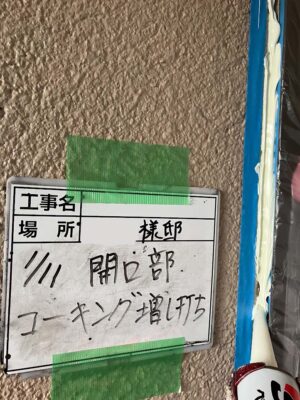 工事名
場所 様邸
1/11 開口部
コーキング増し打ち